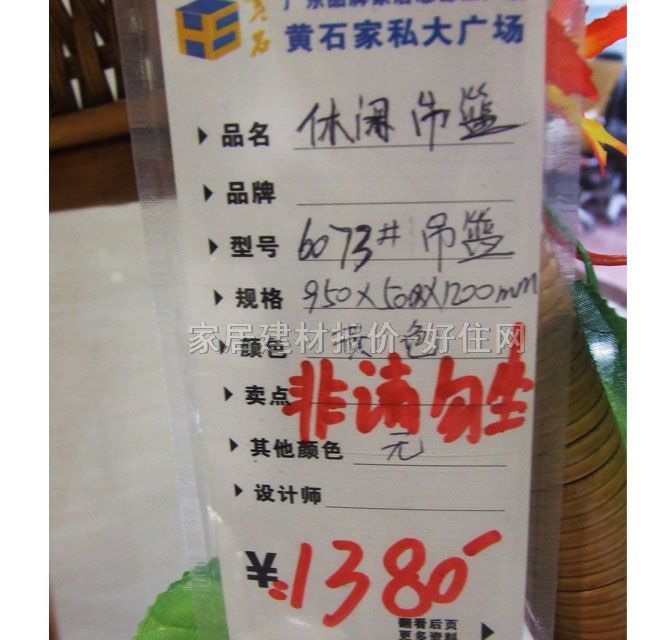 黄石
黄石家私大广场
品名 休闲吊篮
品牌
型号 6073# 吊篮
规格 950X500X1200mm
家居建材报价 好住网
颜色 色
卖点 非请勿坐
其他颜色 无
设计师
¥:1380-
翻看后页
更多资料